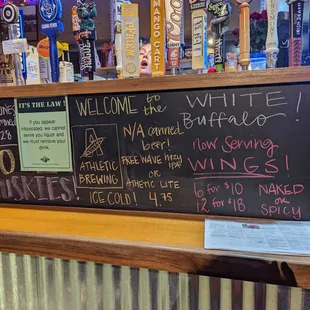 MANGO CART
IT'S THE LAW!
If you appear intoxicated, we cannot serve you liquor and we must remove your drink.
28
O
HUSKIES!
WELCOME to the
WHITE Buffalo!
ATHLETIC BREWING
N/A canned
beer!
FREE WAVE hazy IPA
OR
ATHLETIC LITE
ICE COLD! 4.75
now Serving
WINGS!
6 for $10
12 for $18
NAKED
OR
SPICY